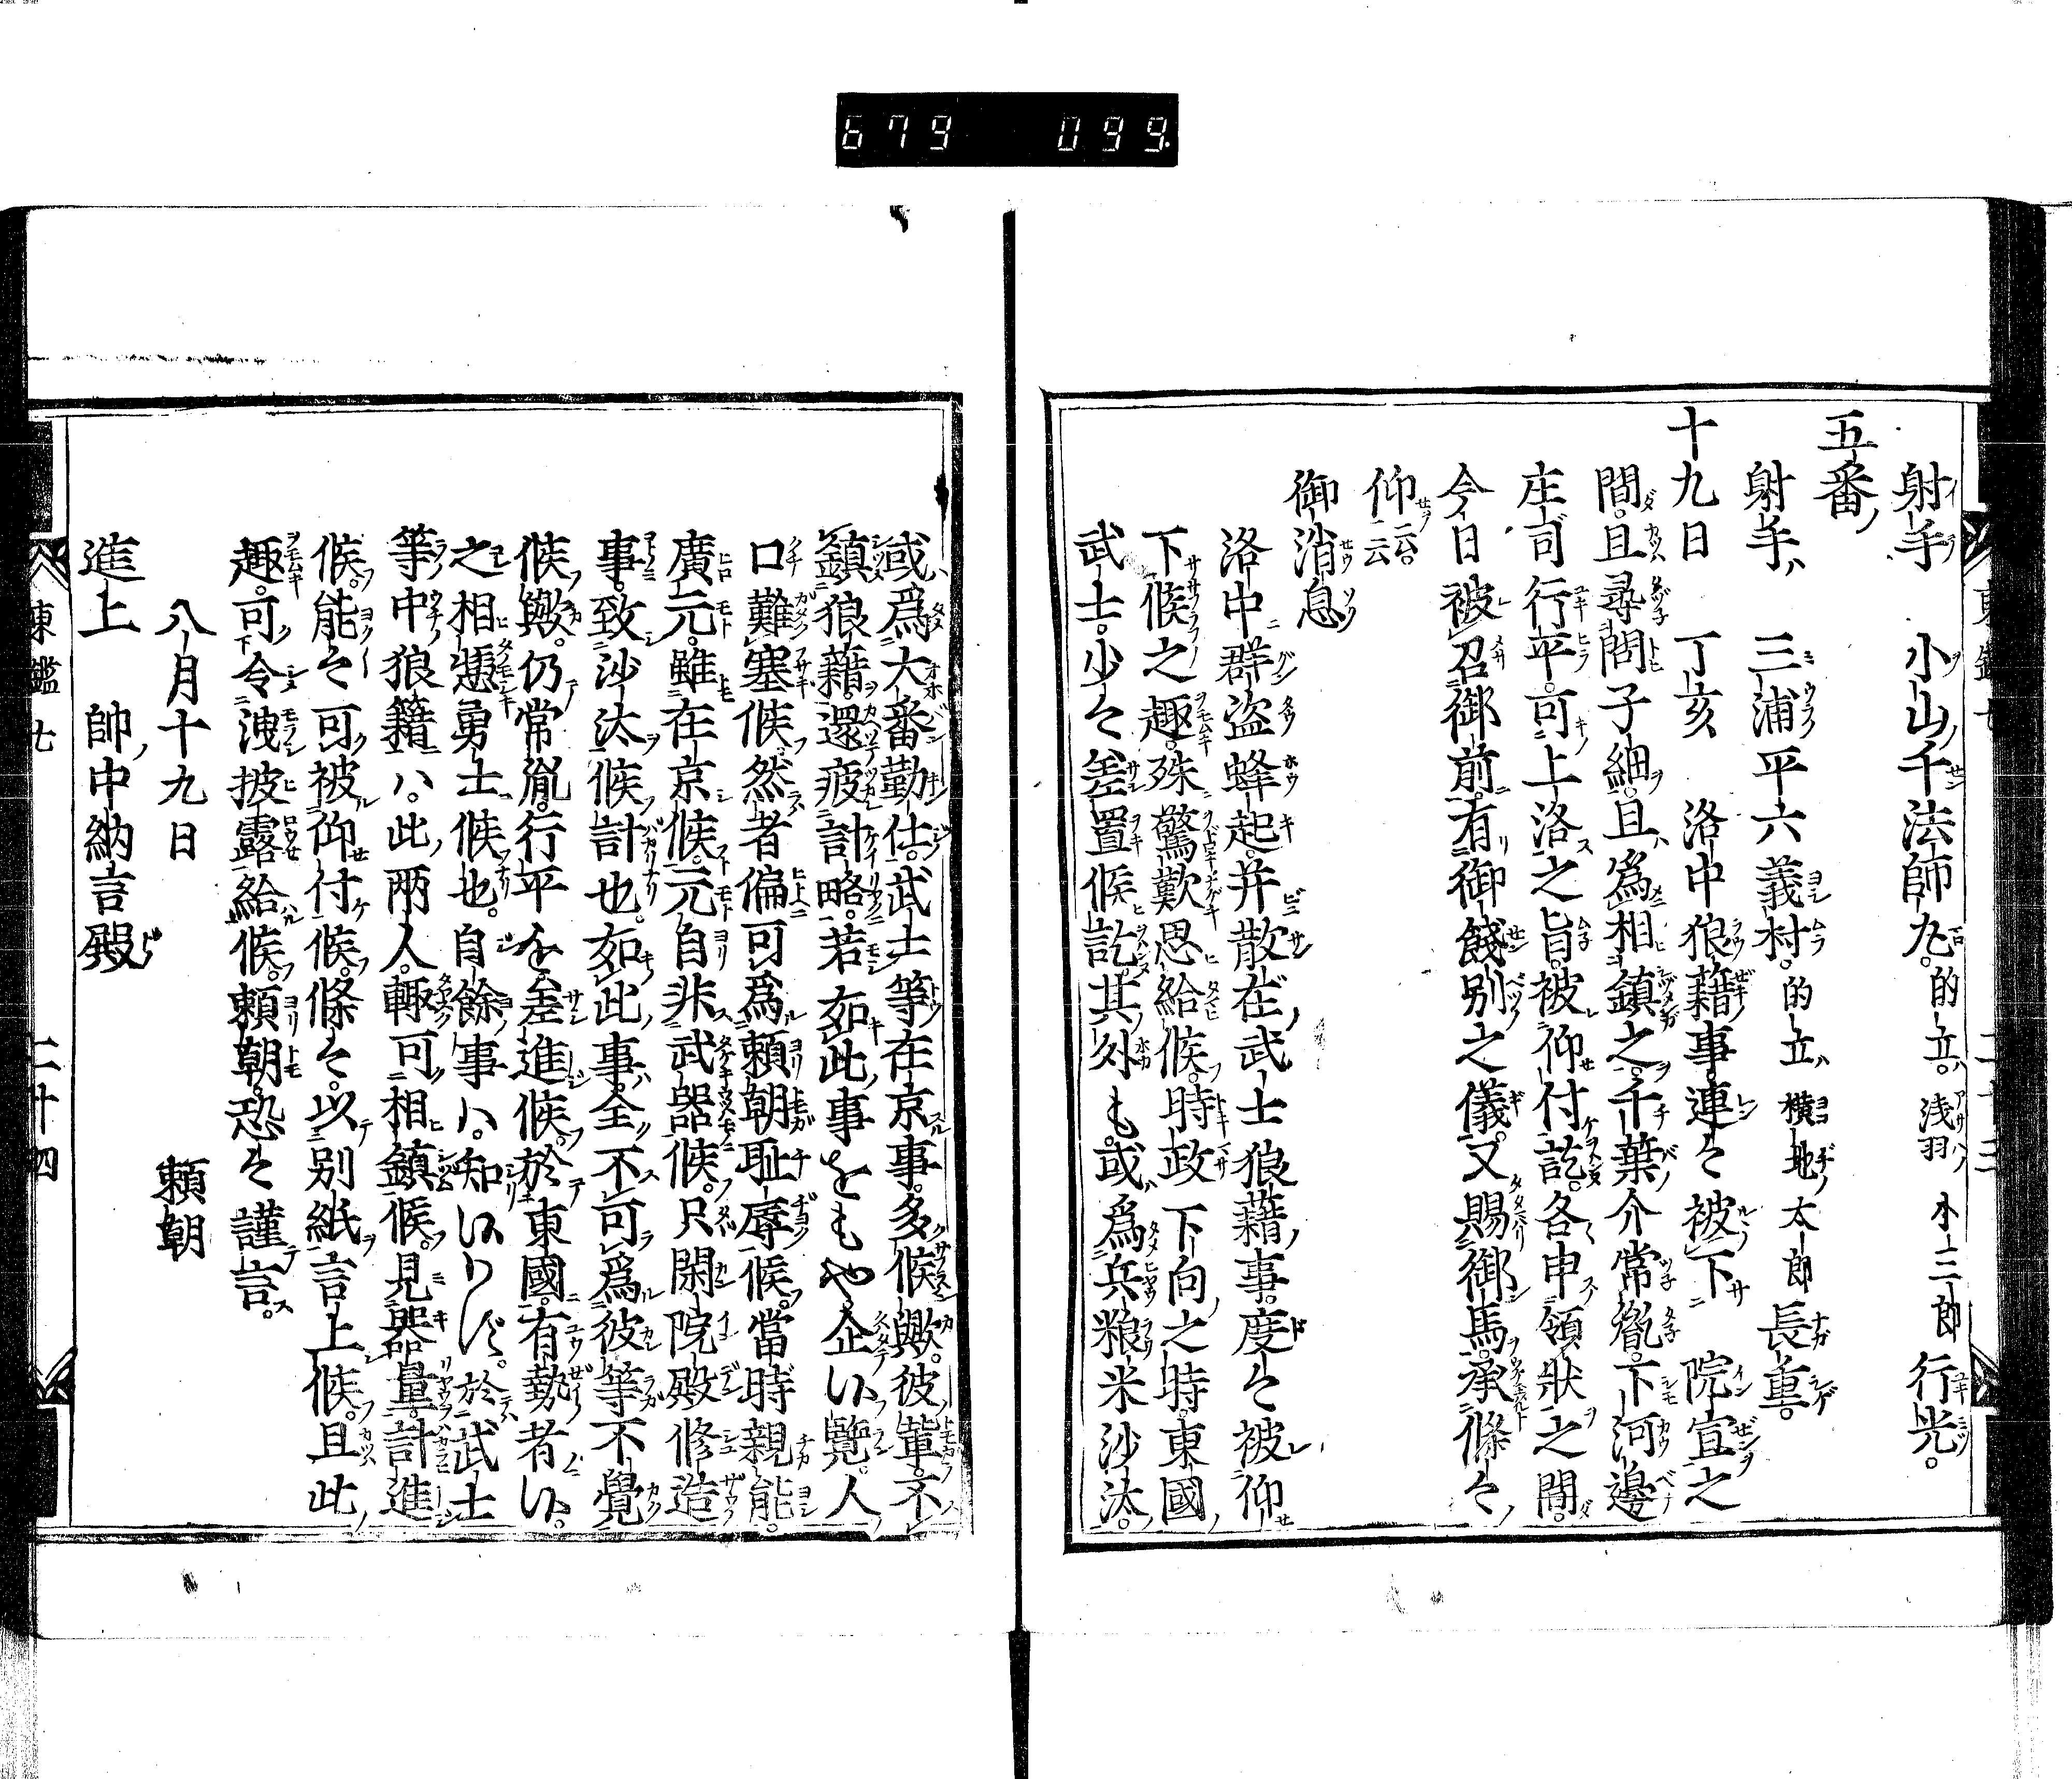 679 099
射手 小山千法師丸。的立。浅羽小三郎行光。
五番
射手 三浦平六義村。的立 横地太郎長重。
十九日 丁亥 洛中狼藉事。連々被下 院宣之
間。且尋問子細。且為相鎮之。千葉介常胤。下河邊
庄司行平。可上洛之旨。被仰付訖。各申領狀之間。
今日被召御前。有御餞別之儀。又賜御馬。承條々
仰云云。
御消息
洛中群盗蜂起。并散在武士狼藉事。度々被仰
下候之趣。殊驚歎思給候。時政下向之時。東國
武士。少々差置候訖。其外も。或為兵粮米沙汰。
或為大番勤仕。武士等在京事。多候歟。彼輩。不
鎮狼藉。還疲計略。若如此事をもや。企候覽。人
口難塞候。然者偏可為頼朝耻辱候。當時親能。
廣元。雖在京候。元自非武器候。只閑院殿修造
事。致沙汰候計也。如此事。全不可為彼等不覺
候歟。仍常胤。行平を差進候。於東國。有勢者候。
之相憑勇士候也。自餘事ハ。知候はず。於武士
等中狼籍ハ。此両人。輙可相鎮候。見器量。計進
候。能々可被仰付候。條々。以別紙言上候。且此
趣。可令洩披露給候。頼朝。恐々謹言。
八月十九日 頼朝
進上 帥中納言殿
東鑑七 二十四